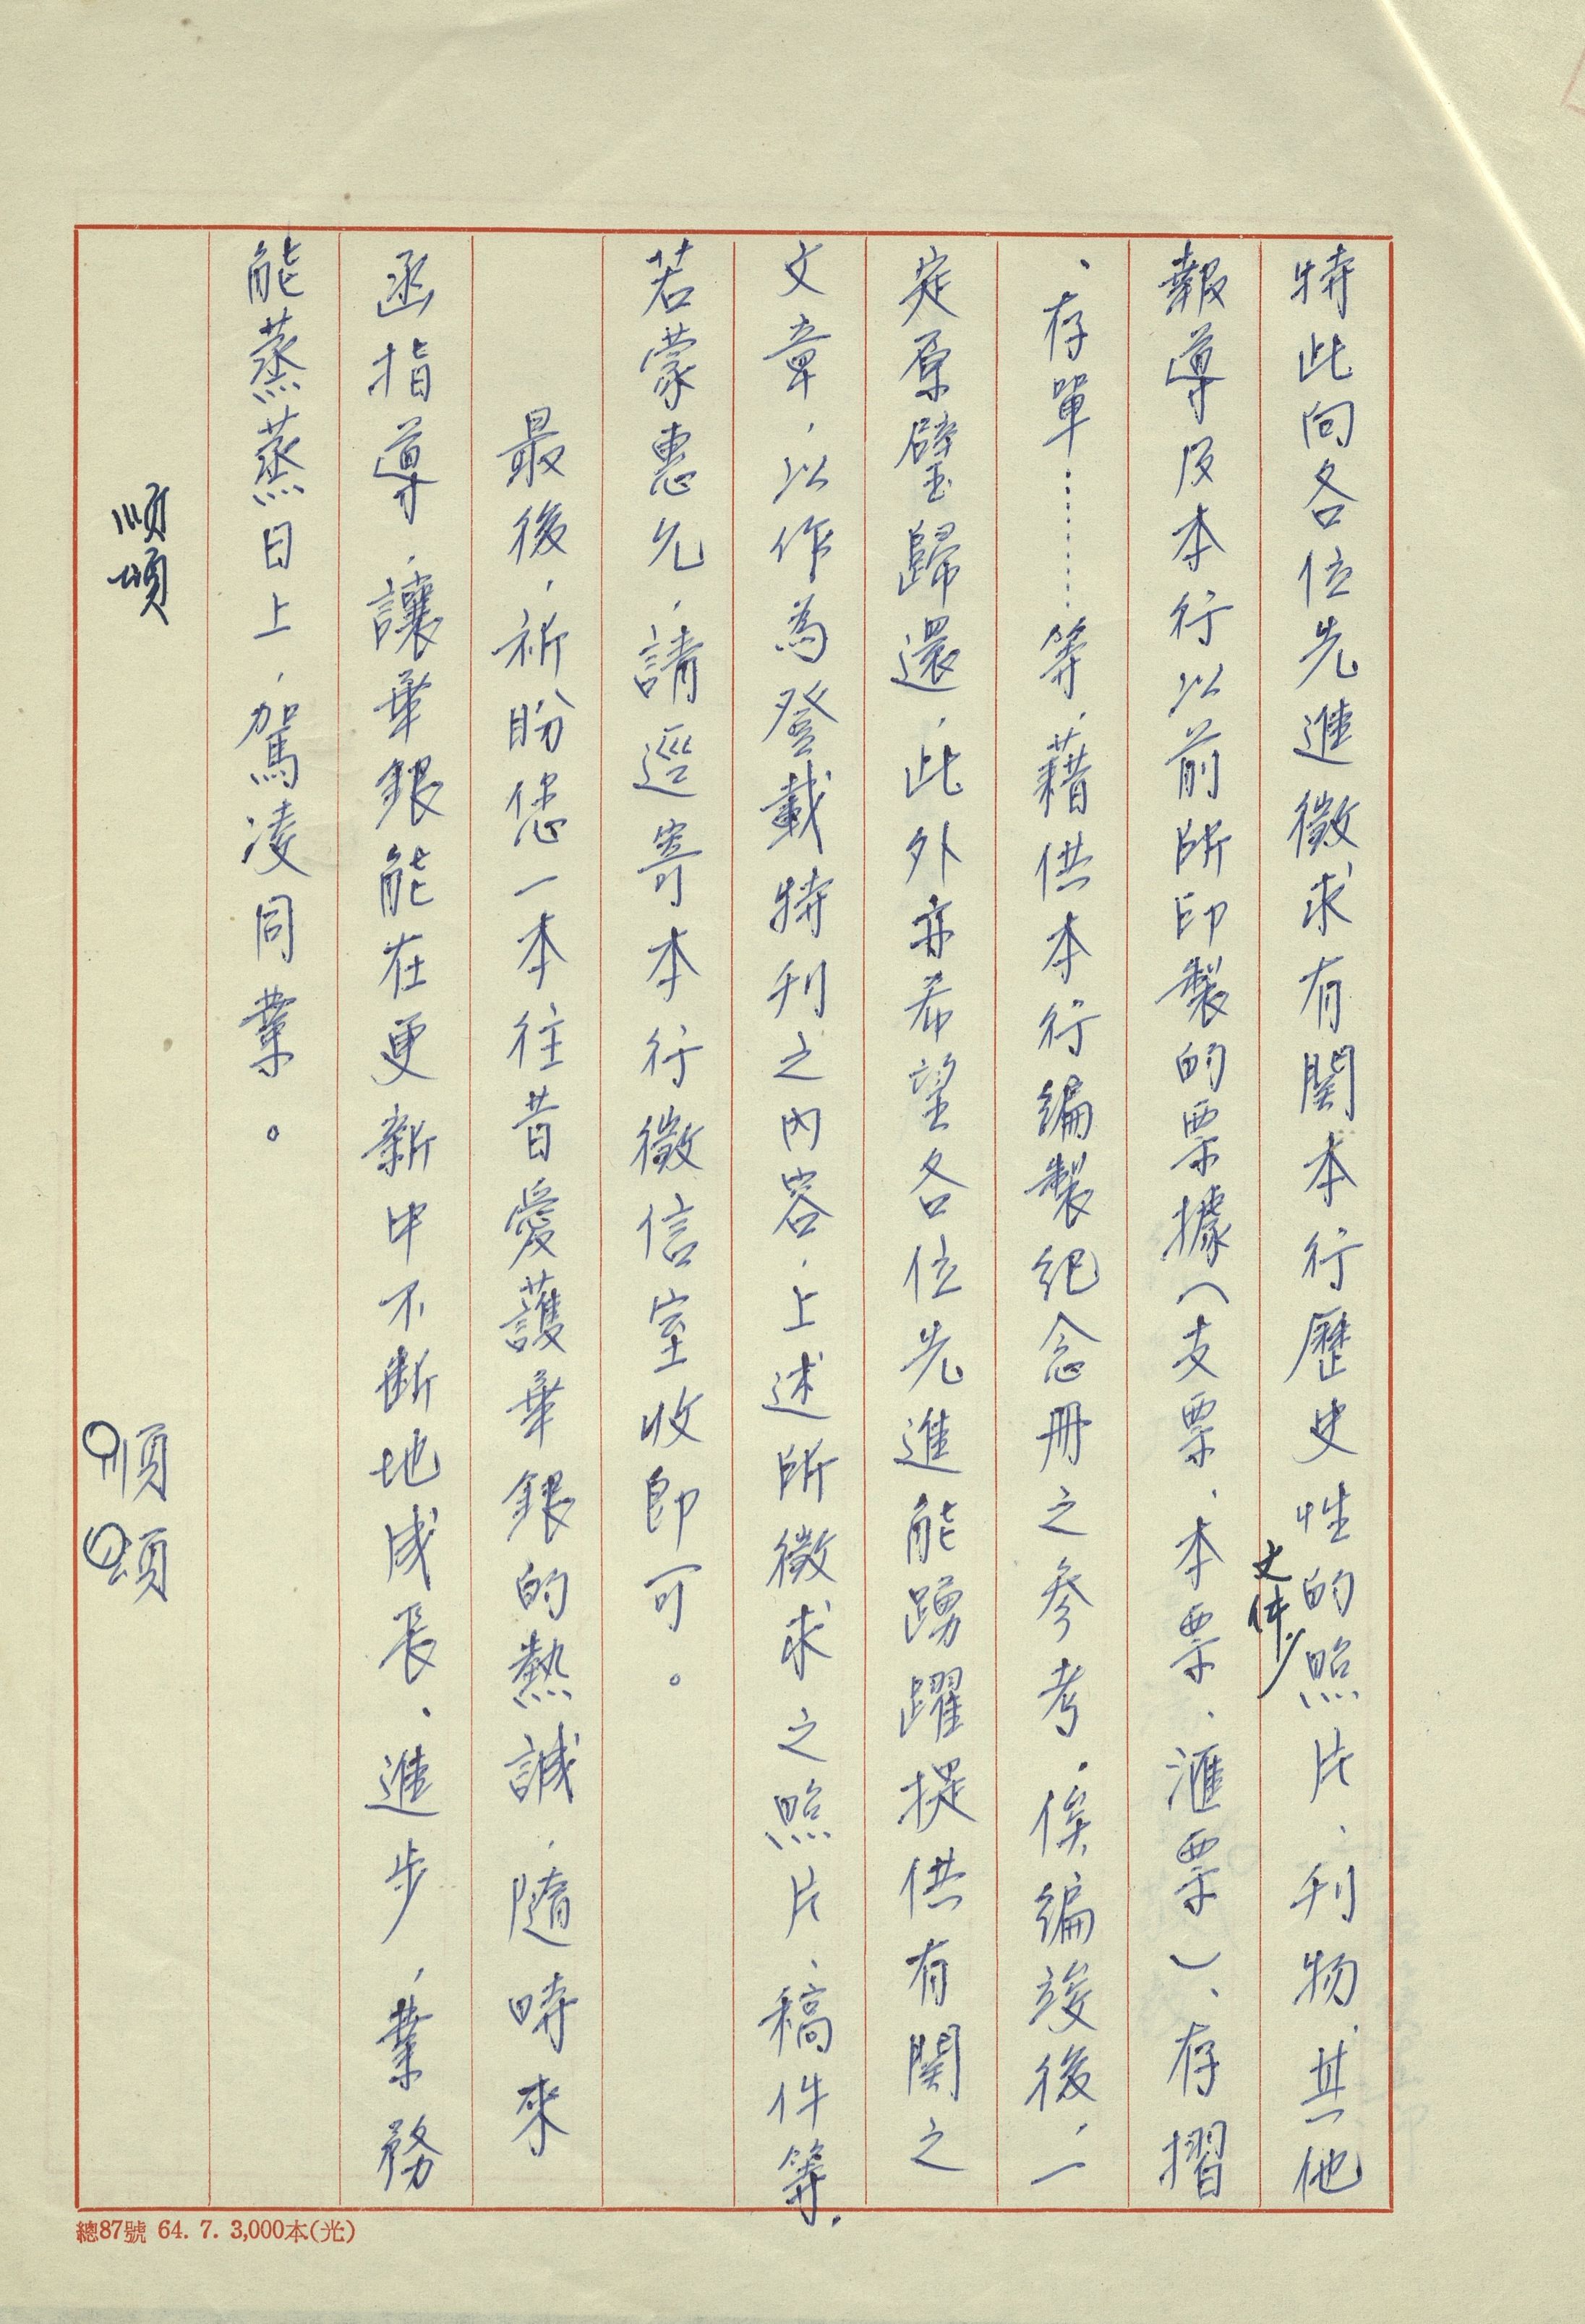 特此向各位先進徵求有關本行歷史性的照片、刊物、其他
文件、
報導及本行以前所印製的票據(支票、本票、滙票)、存摺
、存單………等,藉供本行編製紀念冊之參考,俟編竣後,一
定原璧歸還,此外亦希望各位先進能踴躍提供有関之
文章,以作為登載特刊之內容,上述所徵求之照片、稿件等,
若蒙惠允,請逕寄本行徵信室收即可。
最後,祈盼您一本往昔愛護華銀的熱誠,隨時來
函指導,讓華銀能在更新中不斷地成長、進步,業務
能蒸蒸日上,駕凌同業。
順頌
順頌
總87號 64. 7. 3,000本(光)